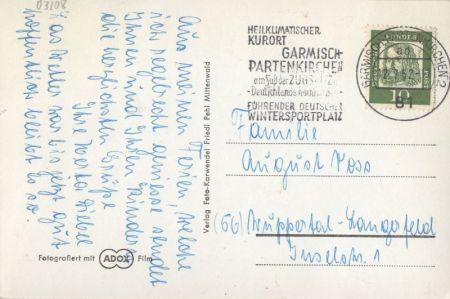 03108
Aus meinen Ferien, welche
ich regelrecht geniesse sendet
Ihnen und Ihren Kindern
die herzlichsten Grüße
Ihre Herta
Das Wetter war bis jetzt gut
hoffentlich bleibt es so.
Fotografiert mit ADOX Film
Verlag Foto-Karwendel Friedl Pehl Mittenwald
HEILKLIMATISCHER
KURORT
GARMISCH-
PARTENKIRCHEN
am Fuß der ZUGSPITZE
Deutschlands
FÜHRENDER DEUTSCHER
WINTERSPORTPLATZ
GARMISCH-PARTENKIRCHEN 2
BUNDES
POST
10
Familie
August Voss
(56) Wuppertal-Langerfeld
Inselstr. 1